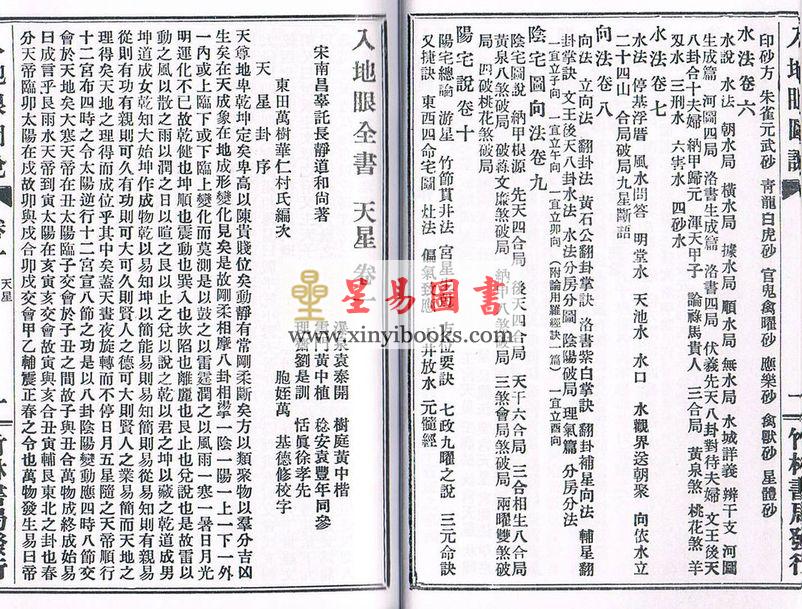 入地眼圖說
一
竹林書局發行
印砂方 朱雀元武砂 青龍白虎砂 官鬼禽曜砂 應樂砂 禽獸砂 星體砂
水法卷六
水說 水法 朝水局 橫水局 據水局 順水局 無水局 水城詳義 辨干支 河圖
生成篇 河圖四局 洛書生成篇 洛書四局 伏羲先天八卦對待夫婦 文王後天
八卦合十夫婦 納甲歸元 渾天甲子 論祿馬貴人 三合局 黃泉煞 桃花煞 羊
刃水 三刑水 六害水 四砂水
水法卷七
水法 停基浮厝 風水問答 明堂水 天池水 水口 水觀界送朝聚 向依水立
二十四山 合局破局九星斷語
向法卷八
向法 立向法 翻卦法 黃石公翻卦掌訣 洛書紫白掌訣 翻卦補星向法 輔星翻
卦掌訣 文王後天八卦水法 水法分房分圖 陰陽破局 理氣篇 分房分法
一宜立子向 一宜立午向 一宜立卯向 (附論用羅經訣一篇) 一宜立酉向
陰宅圖向法卷九
陰宅圖說 納甲根源 先天四合局 後天四合局 天干六合局 三合相生八合局
黃泉八煞破局 破祿文廉煞破局 納甲八煞局 三煞會局煞局 兩曜雙煞破
局 四破桃花煞破局
陽宅說卷十
陽宅總論 游星 竹節貫井法 宮星 方位要訣 七政九曜之說 三元命訣
又捷訣 東西四命宅圖 灶法 偏氣致應 井放水 元髓經
星易圖書
www.xinyibooks.com
入地眼全書 天星 卷一
宋南昌辜託長靜道和尚著
瀑泉袁泰開 樹庭黃中楷
雷門黃中植 稔安袁豐年同參
理齋劉是訓 恬眞徐孝先
東田萬樹華仁村氏編次 胞姪萬 基德修校字
天星卦序
天尊地卑乾坤定矣卑高以陳貴賤位矣動靜有常剛柔斷矣方以類聚物以羣分吉凶
生矣在天成象在地成形變化見矣是故剛柔相摩八卦相盪一陰一陽一上一下一外
一內或上臨下或下臨上變化而莫測是以鼓之以雷霆潤之以風雨一寒一暑日月光
明運化不已故乾健也坤順也震動也巽入也坎陷也離麗也艮止也兌說也是故雷以
動之風以散之雨以潤之日以暄之艮以止之兌以說之乾以君之坤以藏之乾道成男
坤道成女乾知大始坤作成物乾以易知坤以簡能易則易知簡則易從易知則有親易
從則有功有親則可久有功則可大可久則賢人之德可大則賢人之業易簡而天地之
理得矣天地之理得而成位乎其中矣蓋天晝夜旋轉而不停日月五星隨之天帝順行
十二宮布四時之令太陽逆行十二宮宣八節之功是以八卦陰陽變動應四時八節交
會於天地矣大寒天帝在丑太陽臨子交會於子丑之間故子與丑合萬物成終成始易
曰成言乎艮雨水天帝到寅太陽在亥寅亥交會故寅與亥合丑寅輔艮東北之卦也春
分天帝臨卯太陽在戌故卯與戌合卯戌交會甲乙輔震正春之令也萬物發生易曰帝
天星